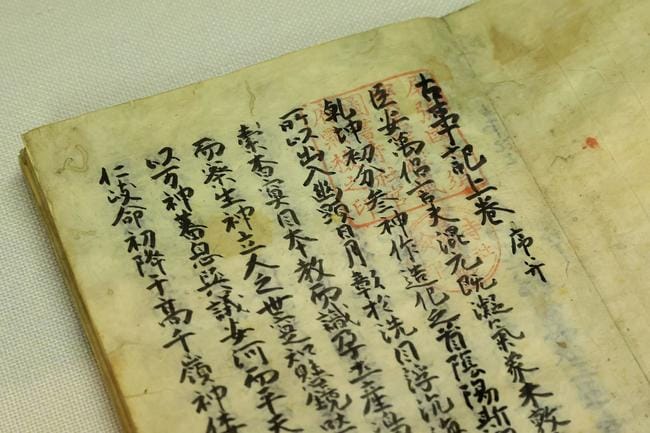 古事記上卷 序并
臣安萬侶言夫混元既凝氣象未敦
乾坤初分参神作造化之首陰陽斯
所以出入幽顯日月彰於洗目浮沉海
素杳冥因本教而識孕土產嶋
而察生神立人之世寔知懸鏡吐
以万神蕃息與議安河而平天
仁岐命初降于高千嶺神倭